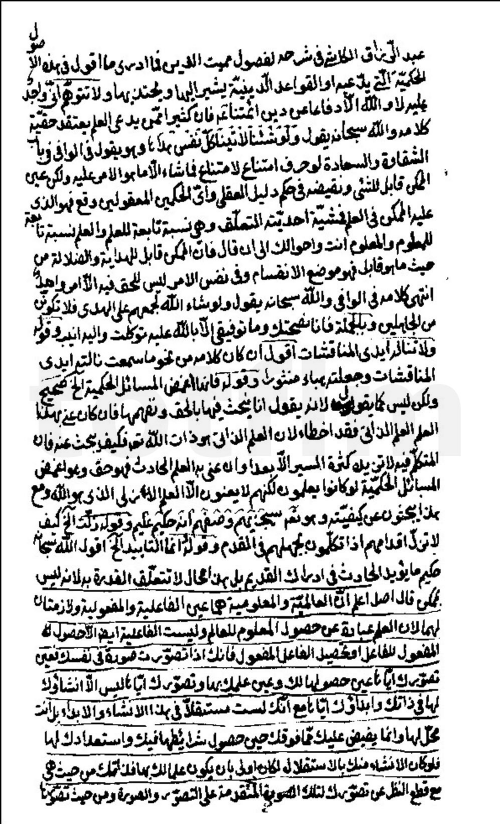 عبد الرزاق الكاشي في شرحه لفصوص مميت الدين فما ادرى ما اقول في هذه الا
صول
الحكمية التي يدّعيه او القواعد الدينية يشير اليها ويحتد بها ولا تتوهم اني واجد
عليه لا والله الا دفاعا عن دين ائمتنا فان كثيرا ممن يدعى العلم يعتقد حقية
كلامه والله سبحانه يقول ولو شئنا لاتينا كل نفس هداها وهو يقول في الوافي في باب
الشقاوة والسعادة لو حرف امتناع لامتناع فما شاء الا ما هو الامر عليه ولكن عين
الممكن قابل للشئ ونقيضه في حكم دليل العقل واي الحكمين المعقولين وقع فهو الذي
عليه الممكن في العلم فمشيته احدية التعلق وهي نسبة تابعة للعلم والعلم نسبة تابعة
للمعلوم والمعلوم انت واحوالك الى ان قال فان الممكن قابل للهداية والضلالة من
حيث ما هو قابل فهو موضع الانقسام وفي نفس الامر ليس للحق فيه الا امر واحد
انتهى كلامه في الوافي والله سبحانه يقول ولو شاء الله لجمعهم على الهدى فلا تكونن
من الجاهلين وبالجملة فانا نصحتك وما توفيقي الا بالله عليه توكلت واليه انيب وقوله
ولا تناله ايدي المناقشات اقول ان كان كلامه من نحو ما سمعت نالته ايدى
المناقشات وجعلته هباء منثورا وقوله فانها اغمض المسائل الحكمية الخ صحيح
ولكن ليس كما يقوله لانه يقول انا نبحث فيها بالحق ونفهمها فان كان عنى بهذا
العلم العلم الذاتي فقد اخطاء لان العلم الذاتي هو ذات الله تعالى فكيف يبحث عنه فان
المتكلم فيه لا تزيده كثرة السير الا بعدا وان عنى به العلم الحادث فهو حق وهو اغمض
المسائل الحكمية لو كانوا يعلمون لكنهم لا يعنون الا العلم الازلي الذي هو الله ومع
هذا يبحثون عن كيفيته وهو تعالى سيجزيهم وصفهم انه حكيم عليم وقوله زلت الخ كيف
لا تزل اقدامهم اذا تكلموا بجهلهم في المقدم وقوله انما التاييد الخ اقول الله سبحانه
حكيم ما يؤيد الحادث في ادراك القديم بل هذا محال لا تتعلق القدرة به لانه ليس
بممكن قال اصل اعلم ان العالمية والمعلومية هما عين الفاعلية والمفعولية ولازمتان
لهما لان العلم عبارة عن حصول المعلوم للعالم وليست الفاعلية ايضا الا حصول
المفعول للفاعل او تحصيل الفاعل المفعول فانك اذا تصورت صورة في نفسك فعين
تصورك اياها عين حصولها لك وعين علمك بها وتصورك اياها ليس الا انشاؤك
لها في ذاتك وابداؤك اياها مع انك لست مستقلا في هذا الانشاء والابداء بل انت
محل لها وانما يفيض عليك مما فوقك حين حصول شرايطها فيك واستعدادك لها
فلو كان الانشاء منك بالاستقلال لكان اولى بان يكون علما لك بها فذاتك من حيث هي
مع قطع النظر عن تصورك لتلك الصورة المتقدمة على التصور والصورة ومن حيث تصورها